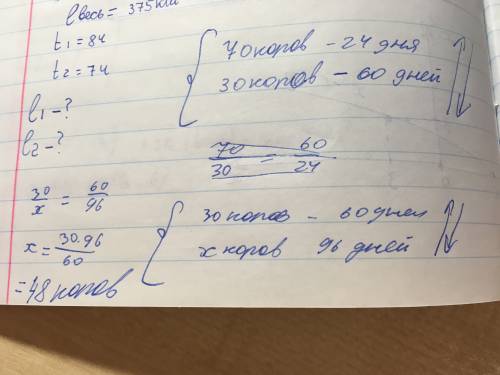 lвесь = 375 км
t1 = 84
t2 = 74
l1 - ?
l2 - ?
70 коров - 24 дня
30 коров - 60 дней
70/30 = 60/24
30/x = 60/96
x = 30·96/60
= 48 коров
30 коров - 60 дней
x коров 96 дней